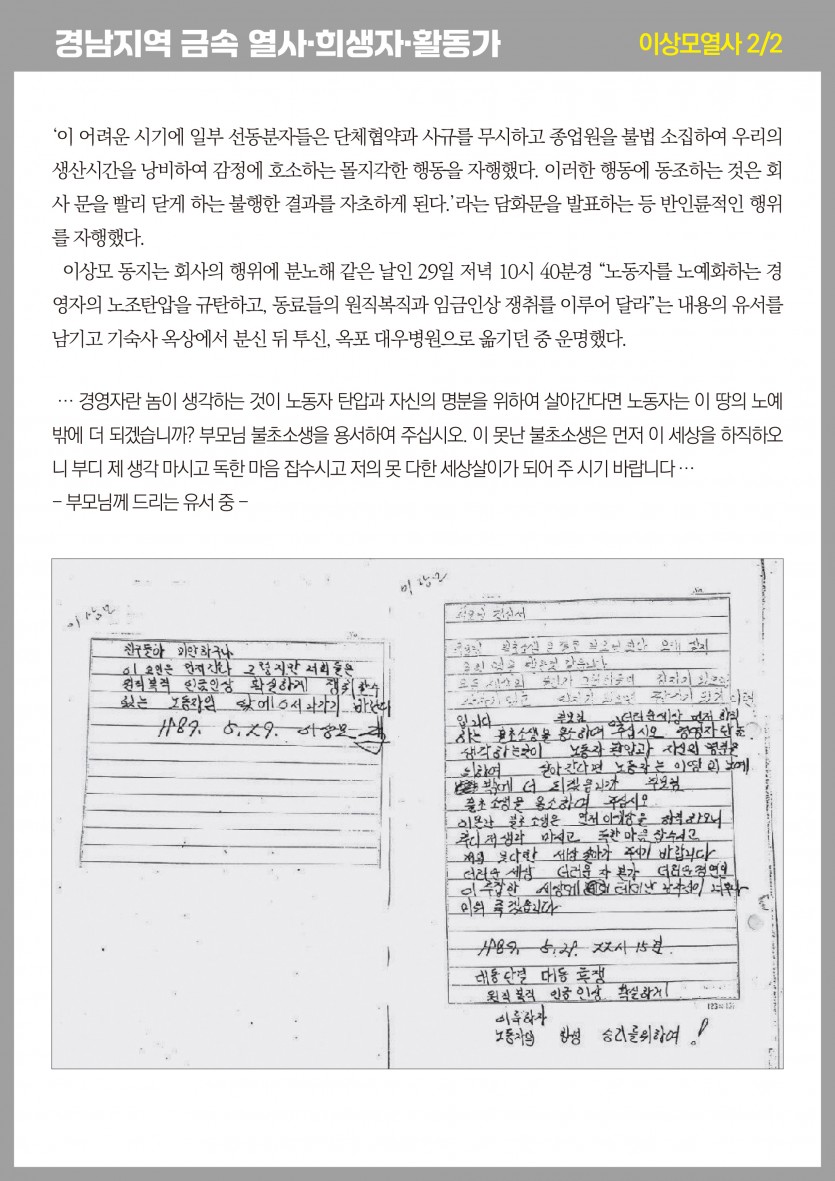 경남지역 금속 열사·희생자·활동가
이상모열사 2/2
‘이 어려운 시기에 일부 선동분자들은 단체협약과 사규를 무시하고 종업원을 불법 소집하여 우리의
생산시간을 낭비하여 감정에 호소하는 몰지각한 행동을 자행했다. 이러한 행동에 동조하는 것은 회
사 문을 빨리 닫게 하는 불행한 결과를 자초하게 된다.’라는 담화문을 발표하는 등 반인륜적인 행위
를 자행했다.
이상모 동지는 회사의 행위에 분노해 같은 날인 29일 저녁 10시 40분경 “노동자를 노예화하는 경
영자의 노조탄압을 규탄하고, 동료들의 원직복직과 임금인상 쟁취를 이루어 달라”는 내용의 유서를
남기고 기숙사 옥상에서 분신 뒤 투신, 옥포 대우병원으로 옮기던 중 운명했다.
… 경영자란 놈이 생각하는 것이 노동자 탄압과 자신의 명분을 위하여 살아간다면 노동자는 이 땅의 노예
밖에 더 되겠습니까? 부모님 불초소생을 용서하여 주십시오. 이 못난 불초소생은 먼저 이 세상을 하직하오
니 부디 제 생각 마시고 독한 마음 잡수시고 저의 못 다한 세상살이가 되어 주 시기 바랍니다 …
– 부모님께 드리는 유서 중 –
이상모
친구들아 미안하구나
원직복직 임금인상 확실하게
있는 노동자의
1989. 5. 29. 이상모
이상모
입니다 부모님 더러운 세상 먼저 하직
하는 불초소생을 용서하여 주십시오 경영자란 놈
생각하는것이 노동자 탄압과 자신의 명분을
위하여 살아간다면 노동자는 이땅의 노예
밖에 더 되겠읍니까 부모님
불초소생을 용서하여 주십시오
이못난 불초소생은 먼저 이세상을 하직하오니
부디 제생각 마시고 독한마음 잡수시고
저의 못다한 세상 주시기 바랍니다
더러운 세상 더러운 자본가 더러운
이 추잡한 세상에
1989. 5. 29. 22시 15분
대동단결 대동투쟁
원직복직 임금인상 확실하게
이룩하자
노동자의 승리를위하여 !